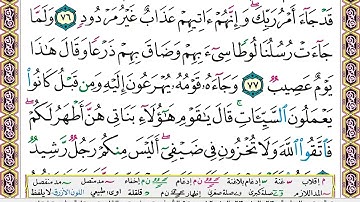 قَدْ جَآءَ أَمْرُ رَبِّكَ ۖ وَإِنَّهُمْ ءَاتِيهِمْ عَذَابٌ غَيْرُ مَرْدُودٍ ٧٦ وَلَمَّا
جَآءَتْ رُسُلُنَا لُوطًا سِىٓءَ بِهِمْ وَضَاقَ بِهِمْ ذَرْعًا وَقَالَ هَـٰذَا
يَوْمٌ عَصِيبٌ ٧٧ وَجَآءَهُۥ قَوْمُهُۥ يُهْرَعُونَ إِلَيْهِ وَمِن قَبْلُ كَانُوا۟
يَعْمَلُونَ ٱلسَّيِّـَٔاتِ ۚ قَالَ يَـٰقَوْمِ هَـٰٓؤُلَآءِ بَنَاتِى هُنَّ أَطْهَرُ لَكُمْ ۖ
فَٱتَّقُوا۟ ٱللَّهَ وَلَا تُخْزُونِ فِى ضَيْفِىٓ ۖ أَلَيْسَ مِنكُمْ رَجُلٌ رَّشِيدٌ